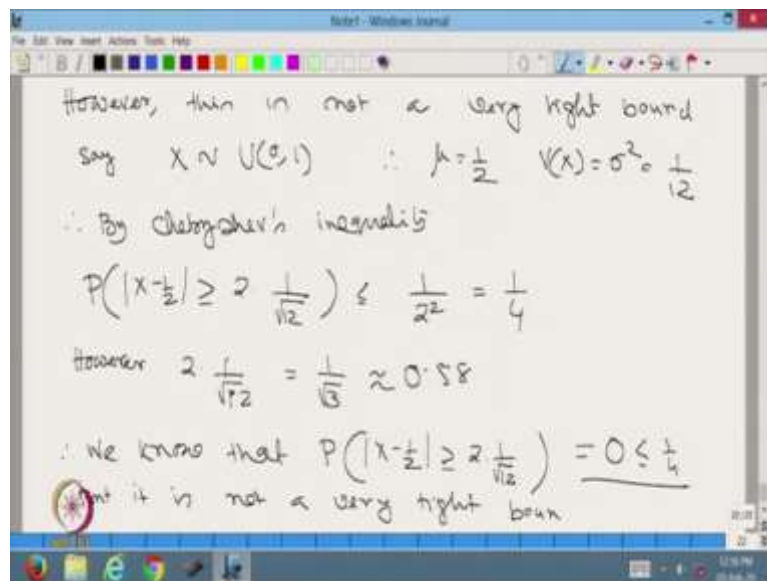 Note1 - Windows Journal
File Edit View Insert Actions Tools Help
However, this is not a very tight bound
Say X ~ U(0,1) ∴ μ = 1/2 V(X) = σ² = 1/12
∴ By Chebyshev's inequality
P(|X-1/2| ≥ 2 1/√12) ≤ 1/2² = 1/4
However 2 · 1/√12 = 1/√3 ≈ 0.58
∴ We know that P(|X-1/2| ≥ 2 1/√12) = 0 ≤ 1/4
it is not a very tight boun